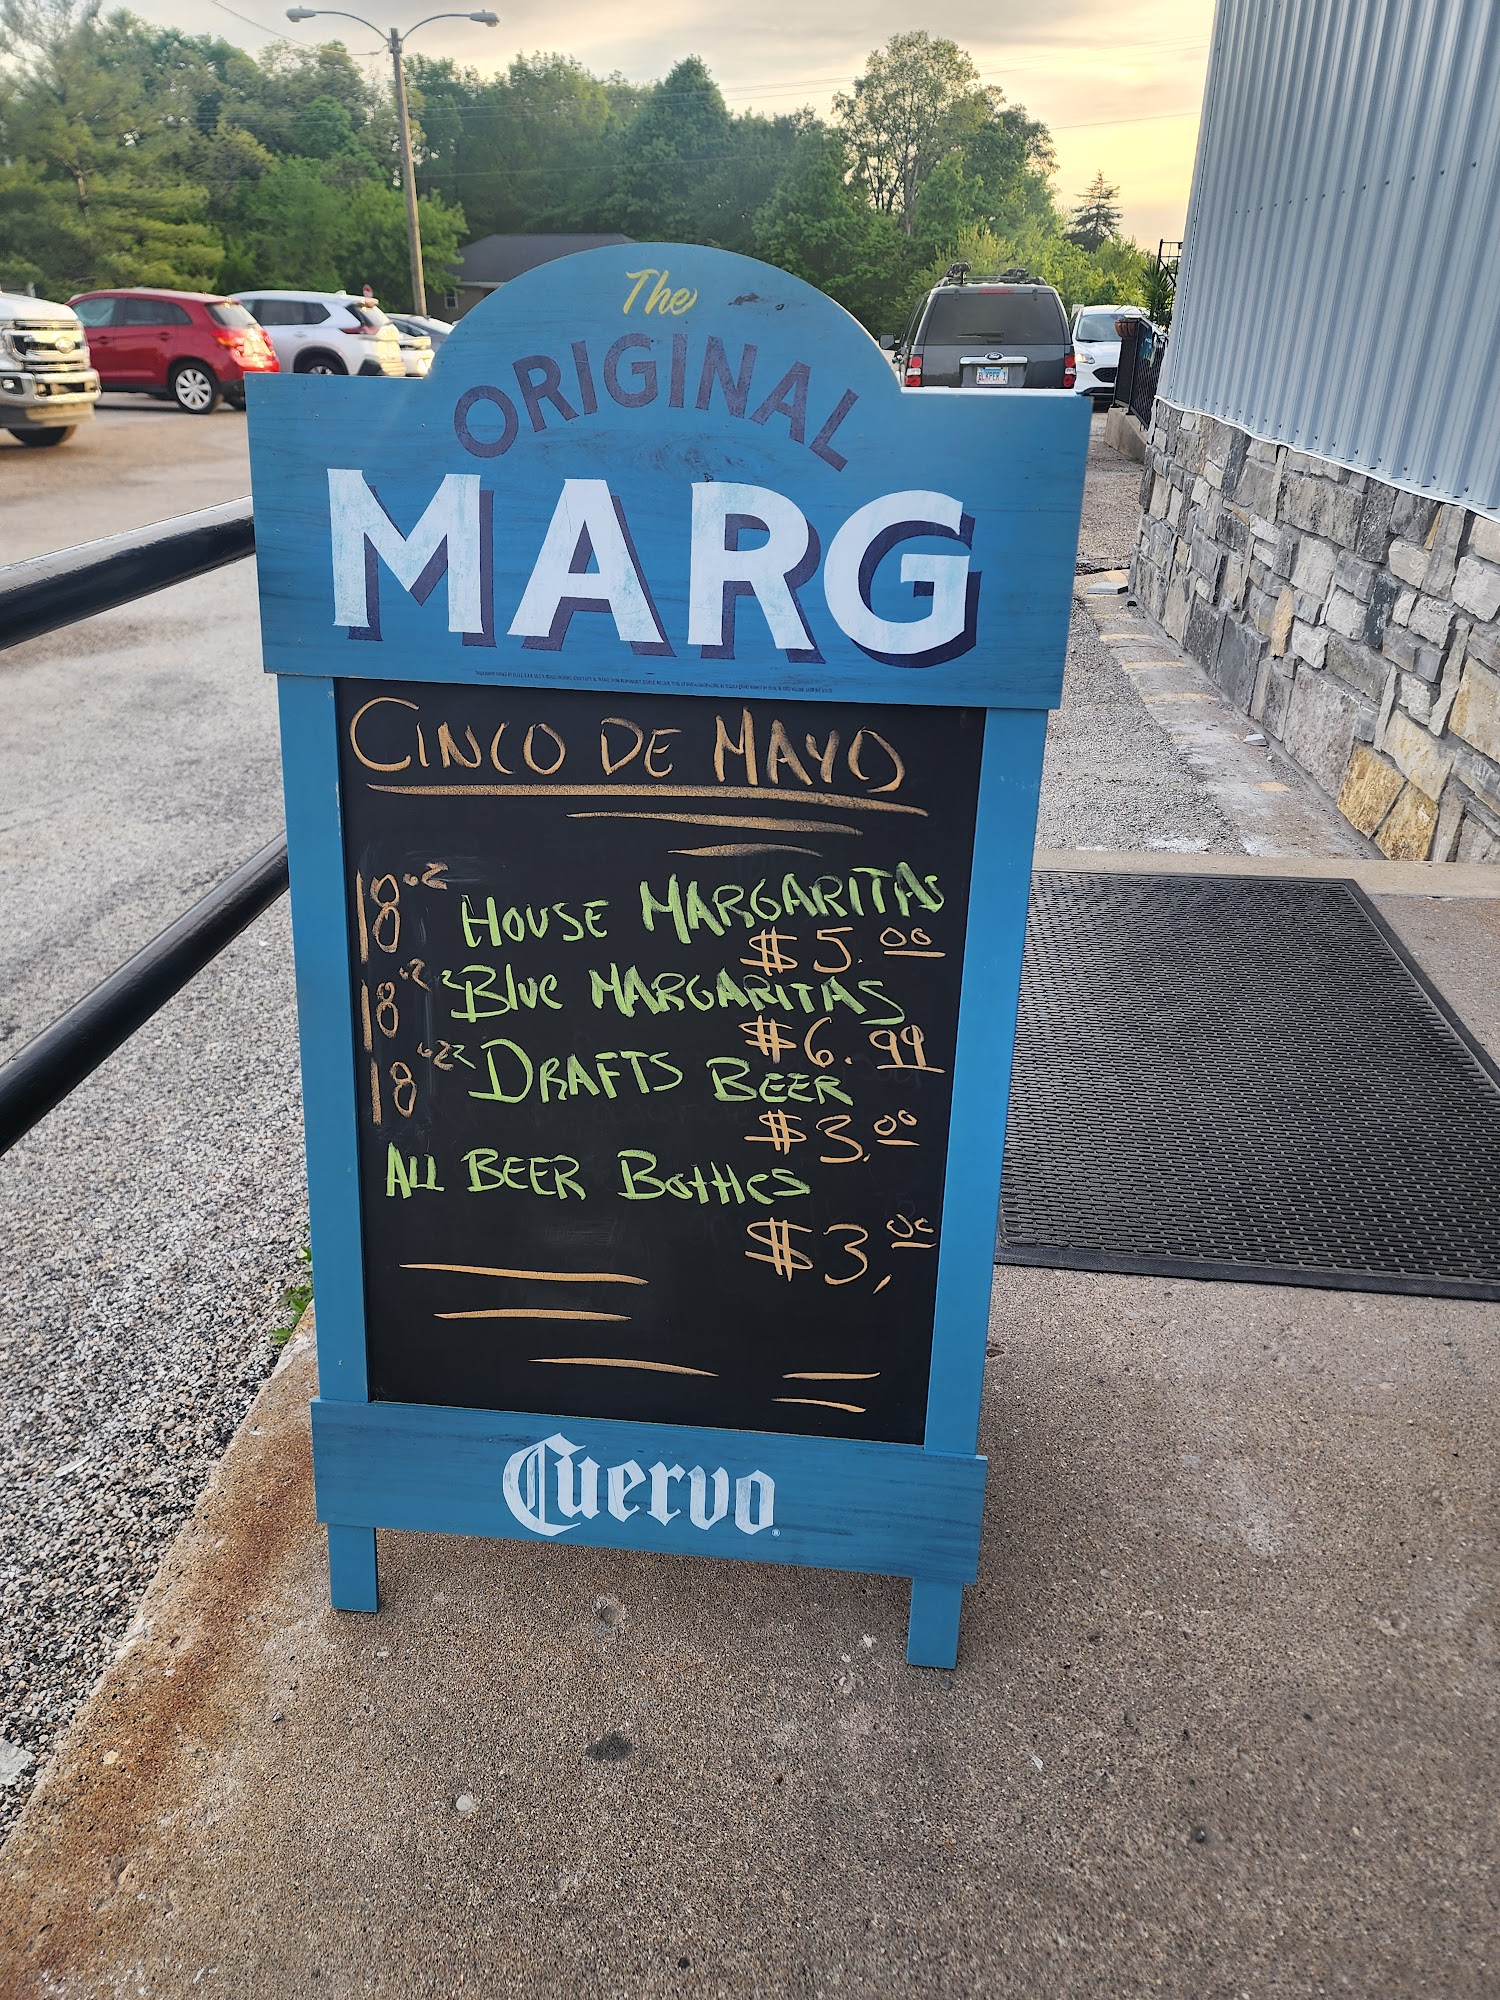 The
ORIGINAL
MARG
CINCO DE MAYO
18oz HOUSE MARGARITAS
$5.00
18oz Blue MARGARITAS
$6.99
18oz DRAFTS BEER
$3.00
ALL BEER Bottles
$3,00
Cuervo
BLKPER 1